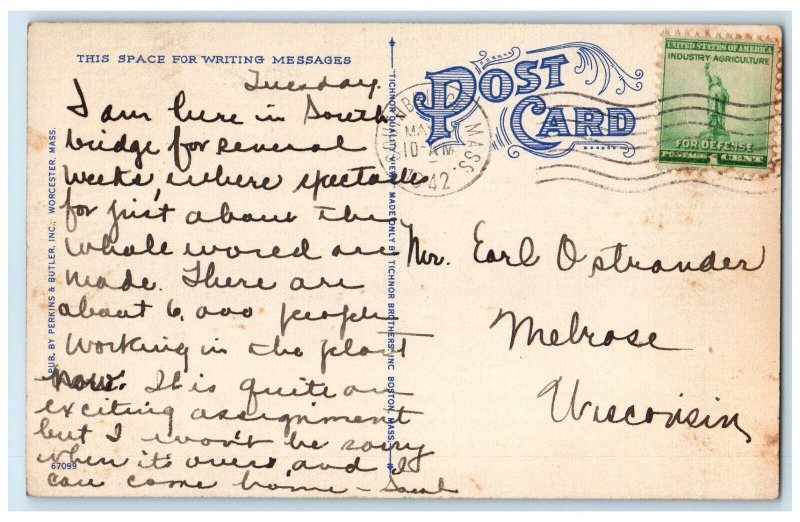 THIS SPACE FOR WRITING MESSAGES
Tuesday.
I am here in South
bridge for several
weeks, where spectacles
for just about the
whole world are
made. There are
about 6,000 people
working in the plant
now. It is quite an
exciting assignment
but I won't be sorry
when it's over, and I
can come home - Sarah
67099
PUB. BY PERKINS & BUTLER, INC., WORCESTER, MASS.
TICHNOR QUALITY VIEWS MADE ONLY BY TICHNOR BROTHERS, INC. BOSTON, MASS.
POST
CARD
MASS.
MAY
10-AM
42
UNITED STATES OF AMERICA
INDUSTRY AGRICULTURE
FOR DEFENSE
POSTAGE 1 CENT
Mr. Earl Ostrander
Melrose
Wisconsin